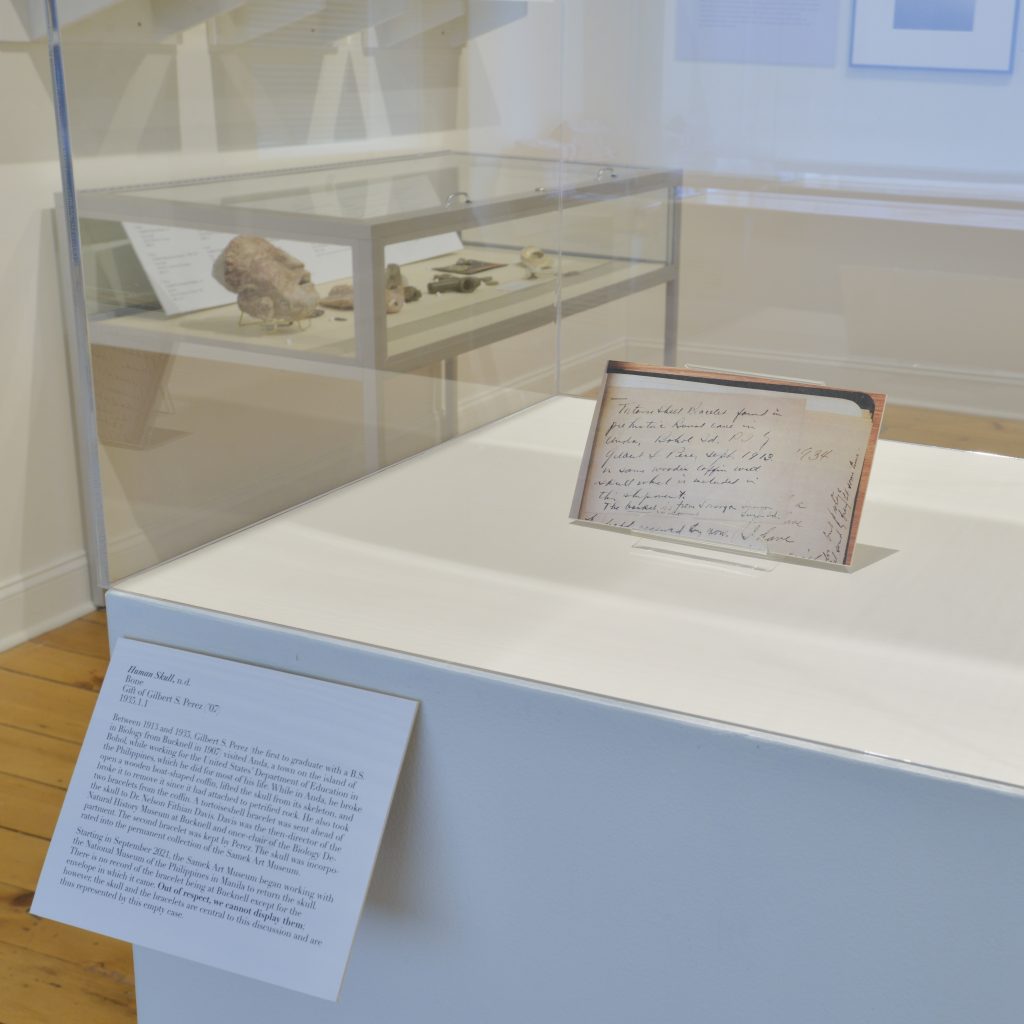 Tortoise shell Bracelet found in
prehistoric burial cave in
Anda, Bohol Id. P.I. by
Gilbert S. Perez, Sept. 1913. 1934
in same wooden coffin with
skull which is included in
this shipment.
The is from
received by now. I have
Human Skull, n.d.
Bone
Gift of Gilbert S. Perez ('07)
1935.1.1
Between 1913 and 1935, Gilbert S. Perez (the first to graduate with a B.S.
in Biology from Bucknell in 1907) visited Anda, a town on the island of
Bohol, while working for the United States' Department of Education in
the Philippines, which he did for most of his life. While in Anda, he broke
open a wooden boat-shaped coffin, lifted the skull from its skeleton, and
broke it to remove it since it had attached to petrified rock. He also took
two bracelets from the coffin. A tortoiseshell bracelet was sent ahead of
the skull to Dr. Nelson Fithian Davis. Davis was the then-director of the
Natural History Museum at Bucknell and once-chair of the Biology De-
partment. The second bracelet was kept by Perez. The skull was incorpo-
rated into the permanent collection of the Samek Art Museum.
Starting in September 2021, the Samek Art Museum began working with
the National Museum of the Philippines in Manila to return the skull.
There is no record of the bracelet being at Bucknell except for the
envelope in which it came. Out of respect, we cannot display them;
however, the skull and the bracelets are central to this discussion and are
thus represented by this empty case.